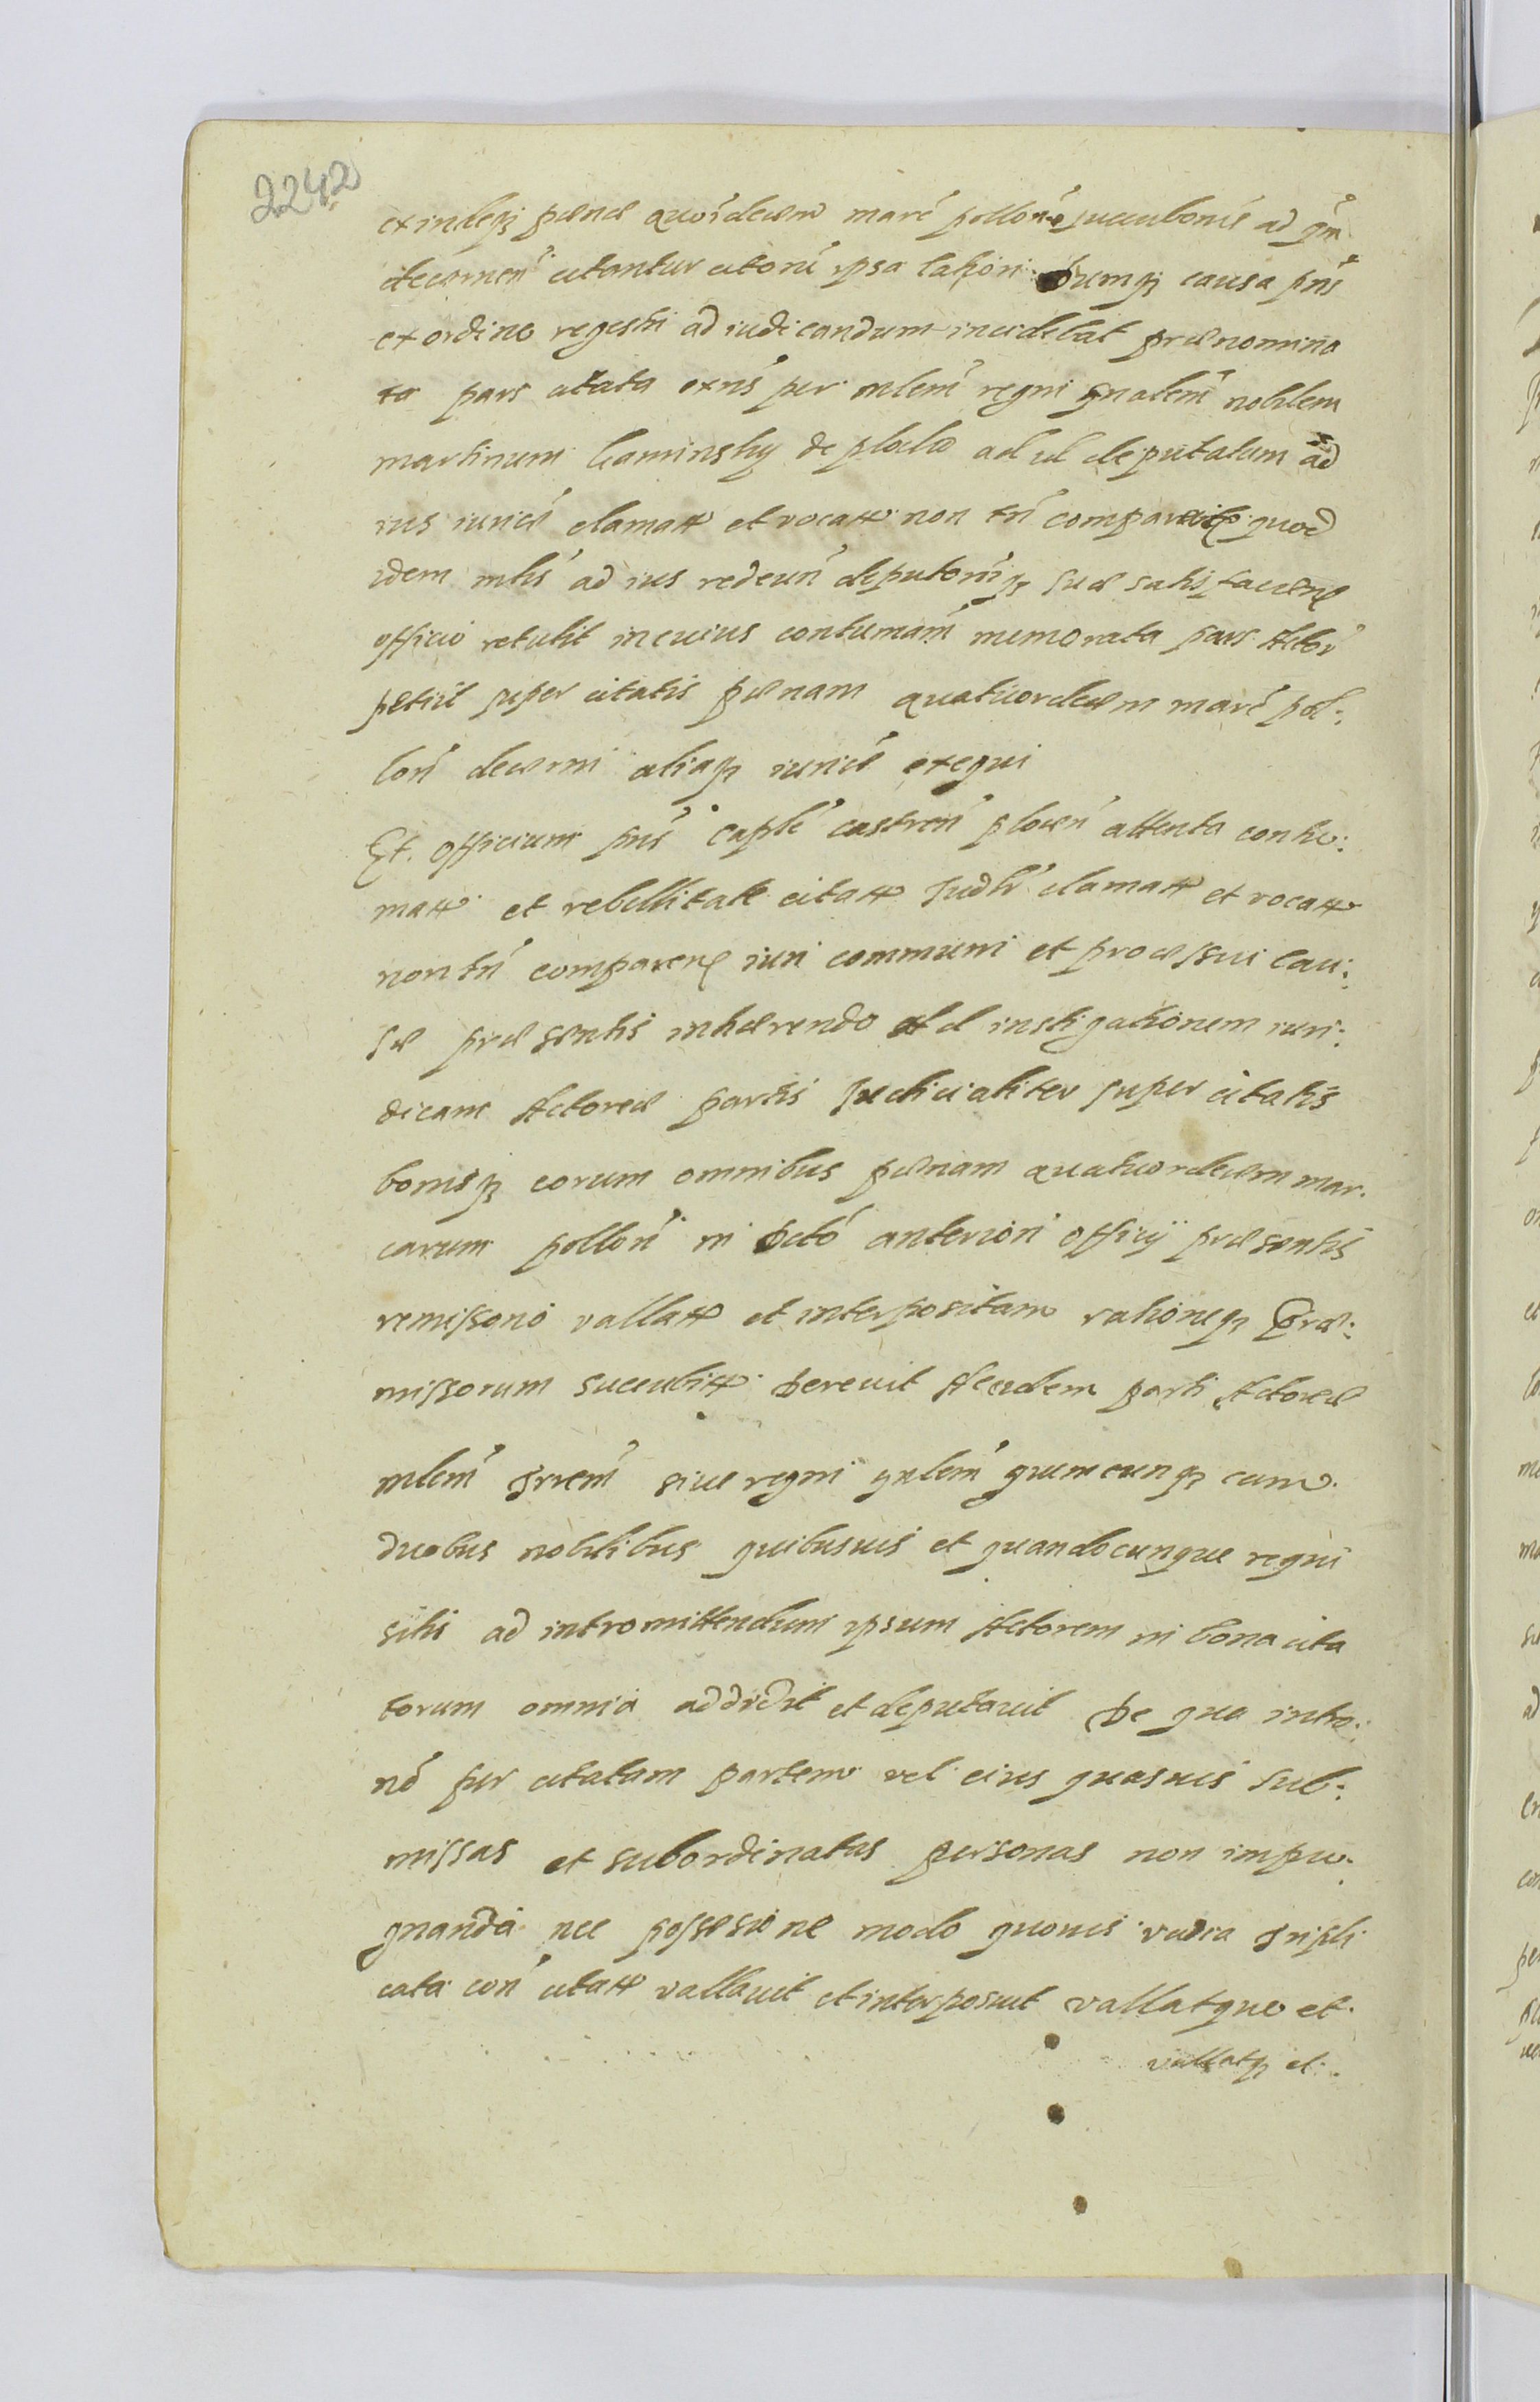 2242
exindeq3 pænæ quoidecem marc pollonic succubonis ad qm
decernen citantur citoni ipsa lation Dumq3 causa pns
ex ordine regestri ad iudicandum incidebat prænomina
ta pars citata exns per mlem regni gnalem nobilem
martinum Kaminsky de plocko ad id deputatum ad
ius iurice clamatt et vocatt non tn comparuit quod
idem mlis ad ius redeun deputoniq3 suæ satisfaciens
officio retulit in cuius contumam memorata pars Actor
petiit super citatis pænam quatuordecem marc pol:
lon decerni aliaq3 iurice exequi
Et officium pns caple castren plocen attenta contu:
matt et rebellitate citatt Judtr clamatt et vocatt
non tn comparens iuri communi et processui cau:
sæ præsentis inhærendo Ad instigationem iuri:
dicam Actoreæ partis Judicialiter super citatis
bonisq3 eorum omnibus pænam quatuordecem mar.
carum pollon in Dcto anteriori officij præsentis
remissono vallatt et interpositam rationeq3 Præ:
missorum succubitt Decrevit Ac eidem parti Actoreæ
mlem Trrem sive regni gnlem quemcunq3 cum
duobus nobilibus quibusvis et quandocunque regni
sibi ad intromittendum ipsum Actorem in bona cita
torum omnia addidit et deputavit De qua intro:
no per citatam partem vel eius quasvis sub:
missas et subordinatas personas non impu:
gnanda nec possesione modo quovis vadia Tripli
cata con citatt vallavit et interposuit vallatque et
vallatq3 et